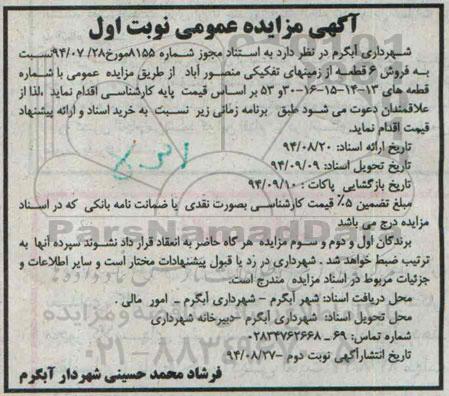 آگهی مزایده عمومی نوبت اول
شهرداری آبگرم در نظر دارد به استناد مجوز شماره ۸۱۵۵مورخ۹۴/۰۷/۲۸نسبت
به فروش ۶ قطعه از زمینهای تفکیکی منصور آباد از طریق مزایده عمومی با شماره
قطعه های ۱۳-۱۴-۱۵-۱۶-۳۰و ۵۳ بر اساس قیمت پایه کارشناسی اقدام نماید ،لذا از
علاقمندان دعوت می شود طبق برنامه زمانی زیر نسبت به خرید اسناد و ارائه پیشنهاد
قیمت اقدام نماید.
تاریخ ارائه اسناد: ۹۴/۰۸/۲۰
تاریخ تحویل اسناد: ۹۴/۰۹/۰۹
تاریخ بازگشایی پاکات : ۹۴/۰۹/۱۰
مبلغ تضمین ۵٪ قیمت کارشناسی بصورت نقدی یا ضمانت نامه بانکی که در اسناد
مزایده درج می باشد
برندگان اول و دوم و سوم مزایده هر گاه حاضر به انعقاد قرار داد نشوند سپرده آنها به
ترتیب ضبط خواهد شد . شهرداری در رد یا قبول پیشنهادات مختار است و سایر اطلاعات و
جزئیات مربوط در اسناد مزایده مندرج است.
محل دریافت اسناد: شهر آبگرم - شهرداری آبگرم - امور مالی .
محل تحویل اسناد: شهرداری آبگرم -دبیرخانه شهرداری
شماره تماس: ۶۹ - ۰۲۸۳۴۷۶۲۶۶۸
تاریخ انتشارآگهی نوبت دوم -۹۴/۰۸/۲۷
فرشاد محمد حسینی شهردار آبگرم
ParsNamadData